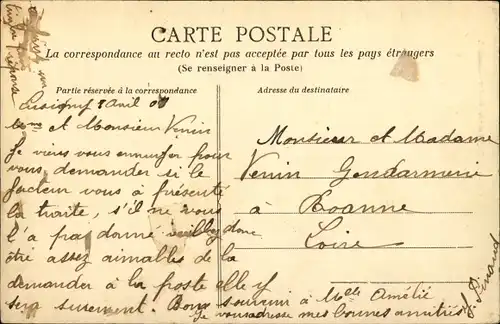 CARTE POSTALE
La correspondance au recto n'est pas acceptée par tous les pays étrangers
(Se renseigner à la Poste)
Partie réservée à la correspondance
Adresse du destinataire
Lusigny 2 Avril
Mme et Monsieur Venin
Je viens vous ennuyer pour
vous demander si le
facteur vous à présenté
la traite, s'il ne vous
l'a pas donné veillez donc
être assez aimables de la
demander à la poste elle y
sera surement. Bons souvenir à Melle Amélie
Je vous adresse mes bonnes amitiés
Monsieur et Madame
Venin Gendarmerie
à Roanne
Loire